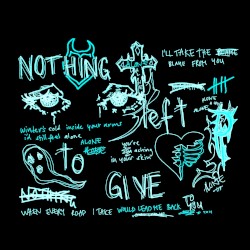 NOTHING
I'LL TAKE THE
BLAME FROM YOU
left
Winter's cold inside your arms
i'd still feel alone
ALONE
you're
aching
in your skin
TO
GIVE
NOTHING
ALONE
WHEN EVERY ROAD I TAKE WOULD LEAD ME BACK TO
YOU